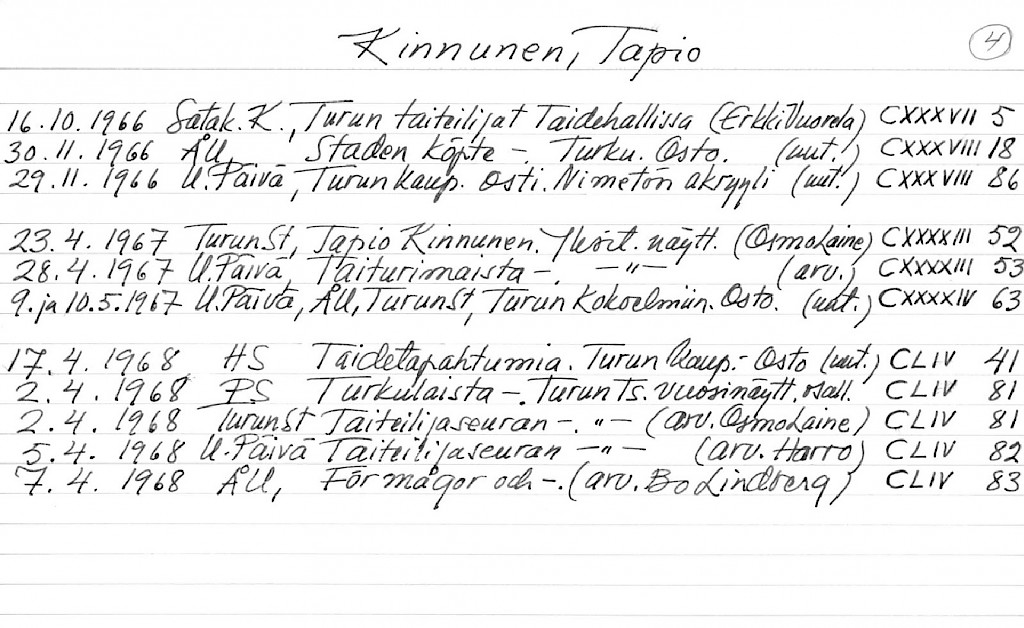 Kinnunen, Tapio 4
16.10.1966 Satak. K., Turun taiteilijat Taidehallissa (Erkki Vuorela) CXXXVII 5
30.11.1966 ÅU, Staden köpte -. Turku. Osto. (uut.) CXXXVIII 18
29.11.1966 U.Päivä, Turun kaup. osti. Nimetön akryyli (uut.) CXXXVIII 86
23.4.1967 TurunSt, Tapio Kinnunen. Yksit. näytt. (Osmo Laine) CXXXXIII 52
28.4.1967 U.Päivä, Taiturimaista -. -"- (arv.) CXXXXIII 53
9. ja 10.5.1967 U.Päivä, ÅU, TurunSt, Turun Kokoelmiin. Osto. (uut.) CXXXXIV 63
17.4.1968 HS Taidetapahtumia. Turun kaup.- Osto (uut.) CLIV 41
2.4.1968 PS Turkulaista -. Turun Ts. vuosinäytt. osall. CLIV 81
2.4.1968 TurunSt Taiteilijaseuran -. "- (arv. Osmo Laine) CLIV 81
5.4.1968 U.Päivä Taiteilijaseuran -"- (arv. Harro) CLIV 82
7.4.1968 ÅU, För mågor och -. (arv. Bo Lindberg) CLIV 83